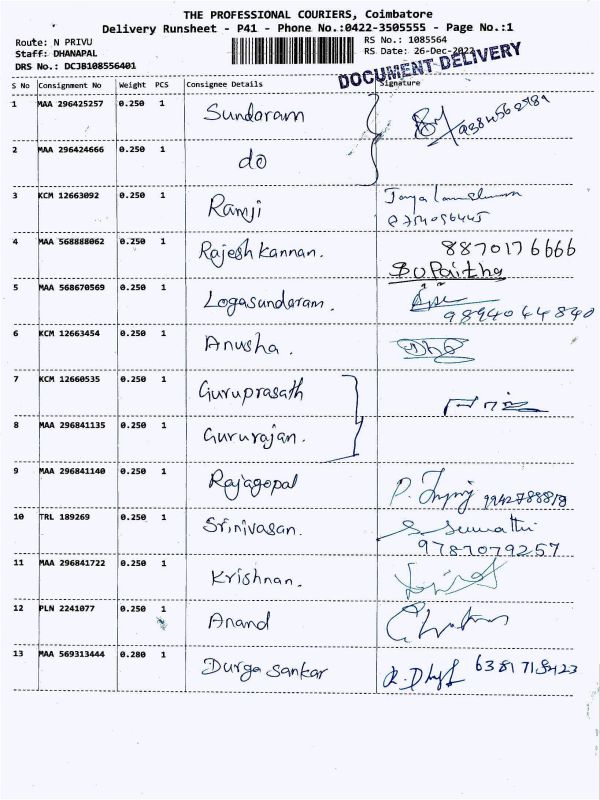 THE PROFESSIONAL COURIERS, Coimbatore
Delivery Runsheet - P41 - Phone No.:0422-3505555 - Page No.:1
Route: N PRIVU
Staff: DHANAPAL
DRS No.: DCJB108556401
RS No.: 1085564
RS Date: 26-Dec-2022
DOCUMENT DELIVERY
S No Consignment No Weight PCS Consignee Details Signature
1 MAA 296425257 0.250 1 Sundaram
2 MAA 296424666 0.250 1 do
3 KCM 12663092 0.250 1 Ramji
4 MAA 568888062 0.250 1 Rajesh Kannan. 8870176666
5 MAA 568670569 0.250 1 Logasundaram. 9894044840
6 KCM 12663454 0.250 1 Anusha.
7 KCM 12660535 0.250 1 Guruprasath
8 MAA 296841135 0.250 1 Gururajan.
9 MAA 296841140 0.250 1 Rajagopal
10 TRL 189269 0.250 1 Srinivasan. S Sumathi
9787079257
11 MAA 296841722 0.250 1 Krishnan.
12 PLN 2241077 0.250 1 Anand
13 MAA 569313444 0.280 1 Durga Sankar